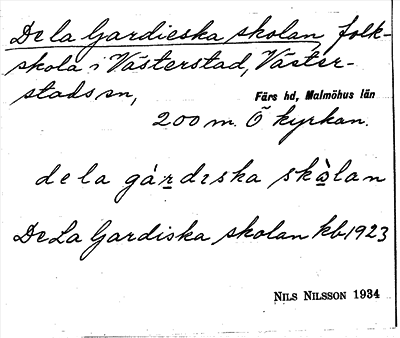 De la Gardieska skolan, folk-
skola i Västerstad, Väster-
stads sn, Färs hd, Malmöhus län
200 m. Ö kyrkan.
de la gárdıska skålan
De La Gardiska skolan kb 1923
NILS NILSSON 1934